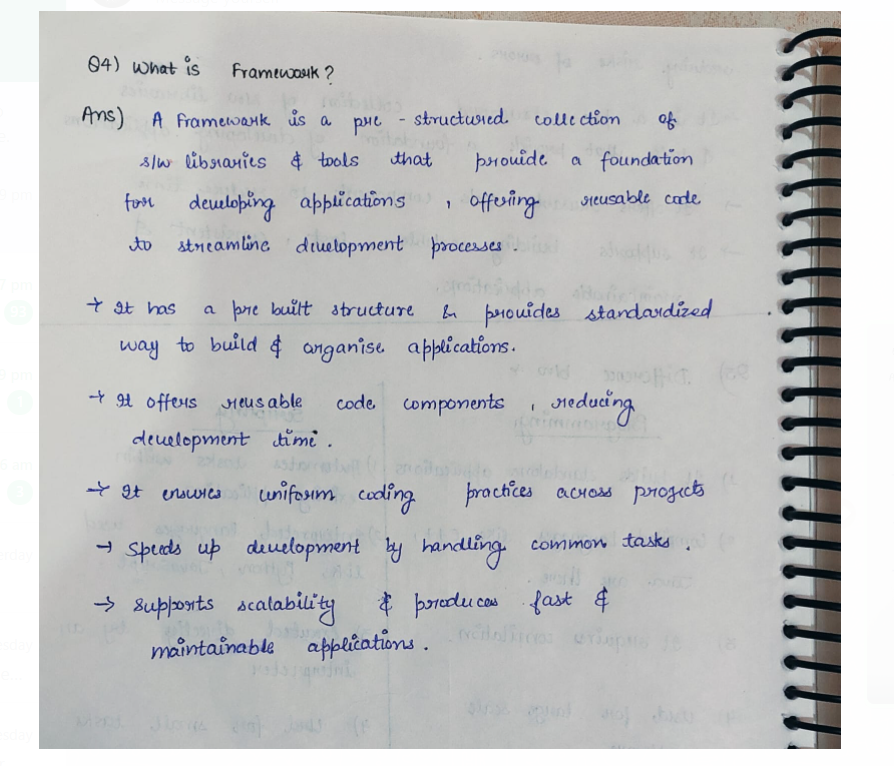 Q4) What is Framework?
Ans) A Framework is a pre - structured collection of
s/w libraries & tools that provide a foundation
for developing applications , offering reusable code
to streamline development processes.
→ It has a pre built structure & provides standardized
way to build & organise applications.
→ It offers reusable code components , reducing
development time.
→ It ensures uniform coding practices across projects
→ Speeds up development by handling common tasks.
→ Supports scalability & produces fast &
maintainable applications.